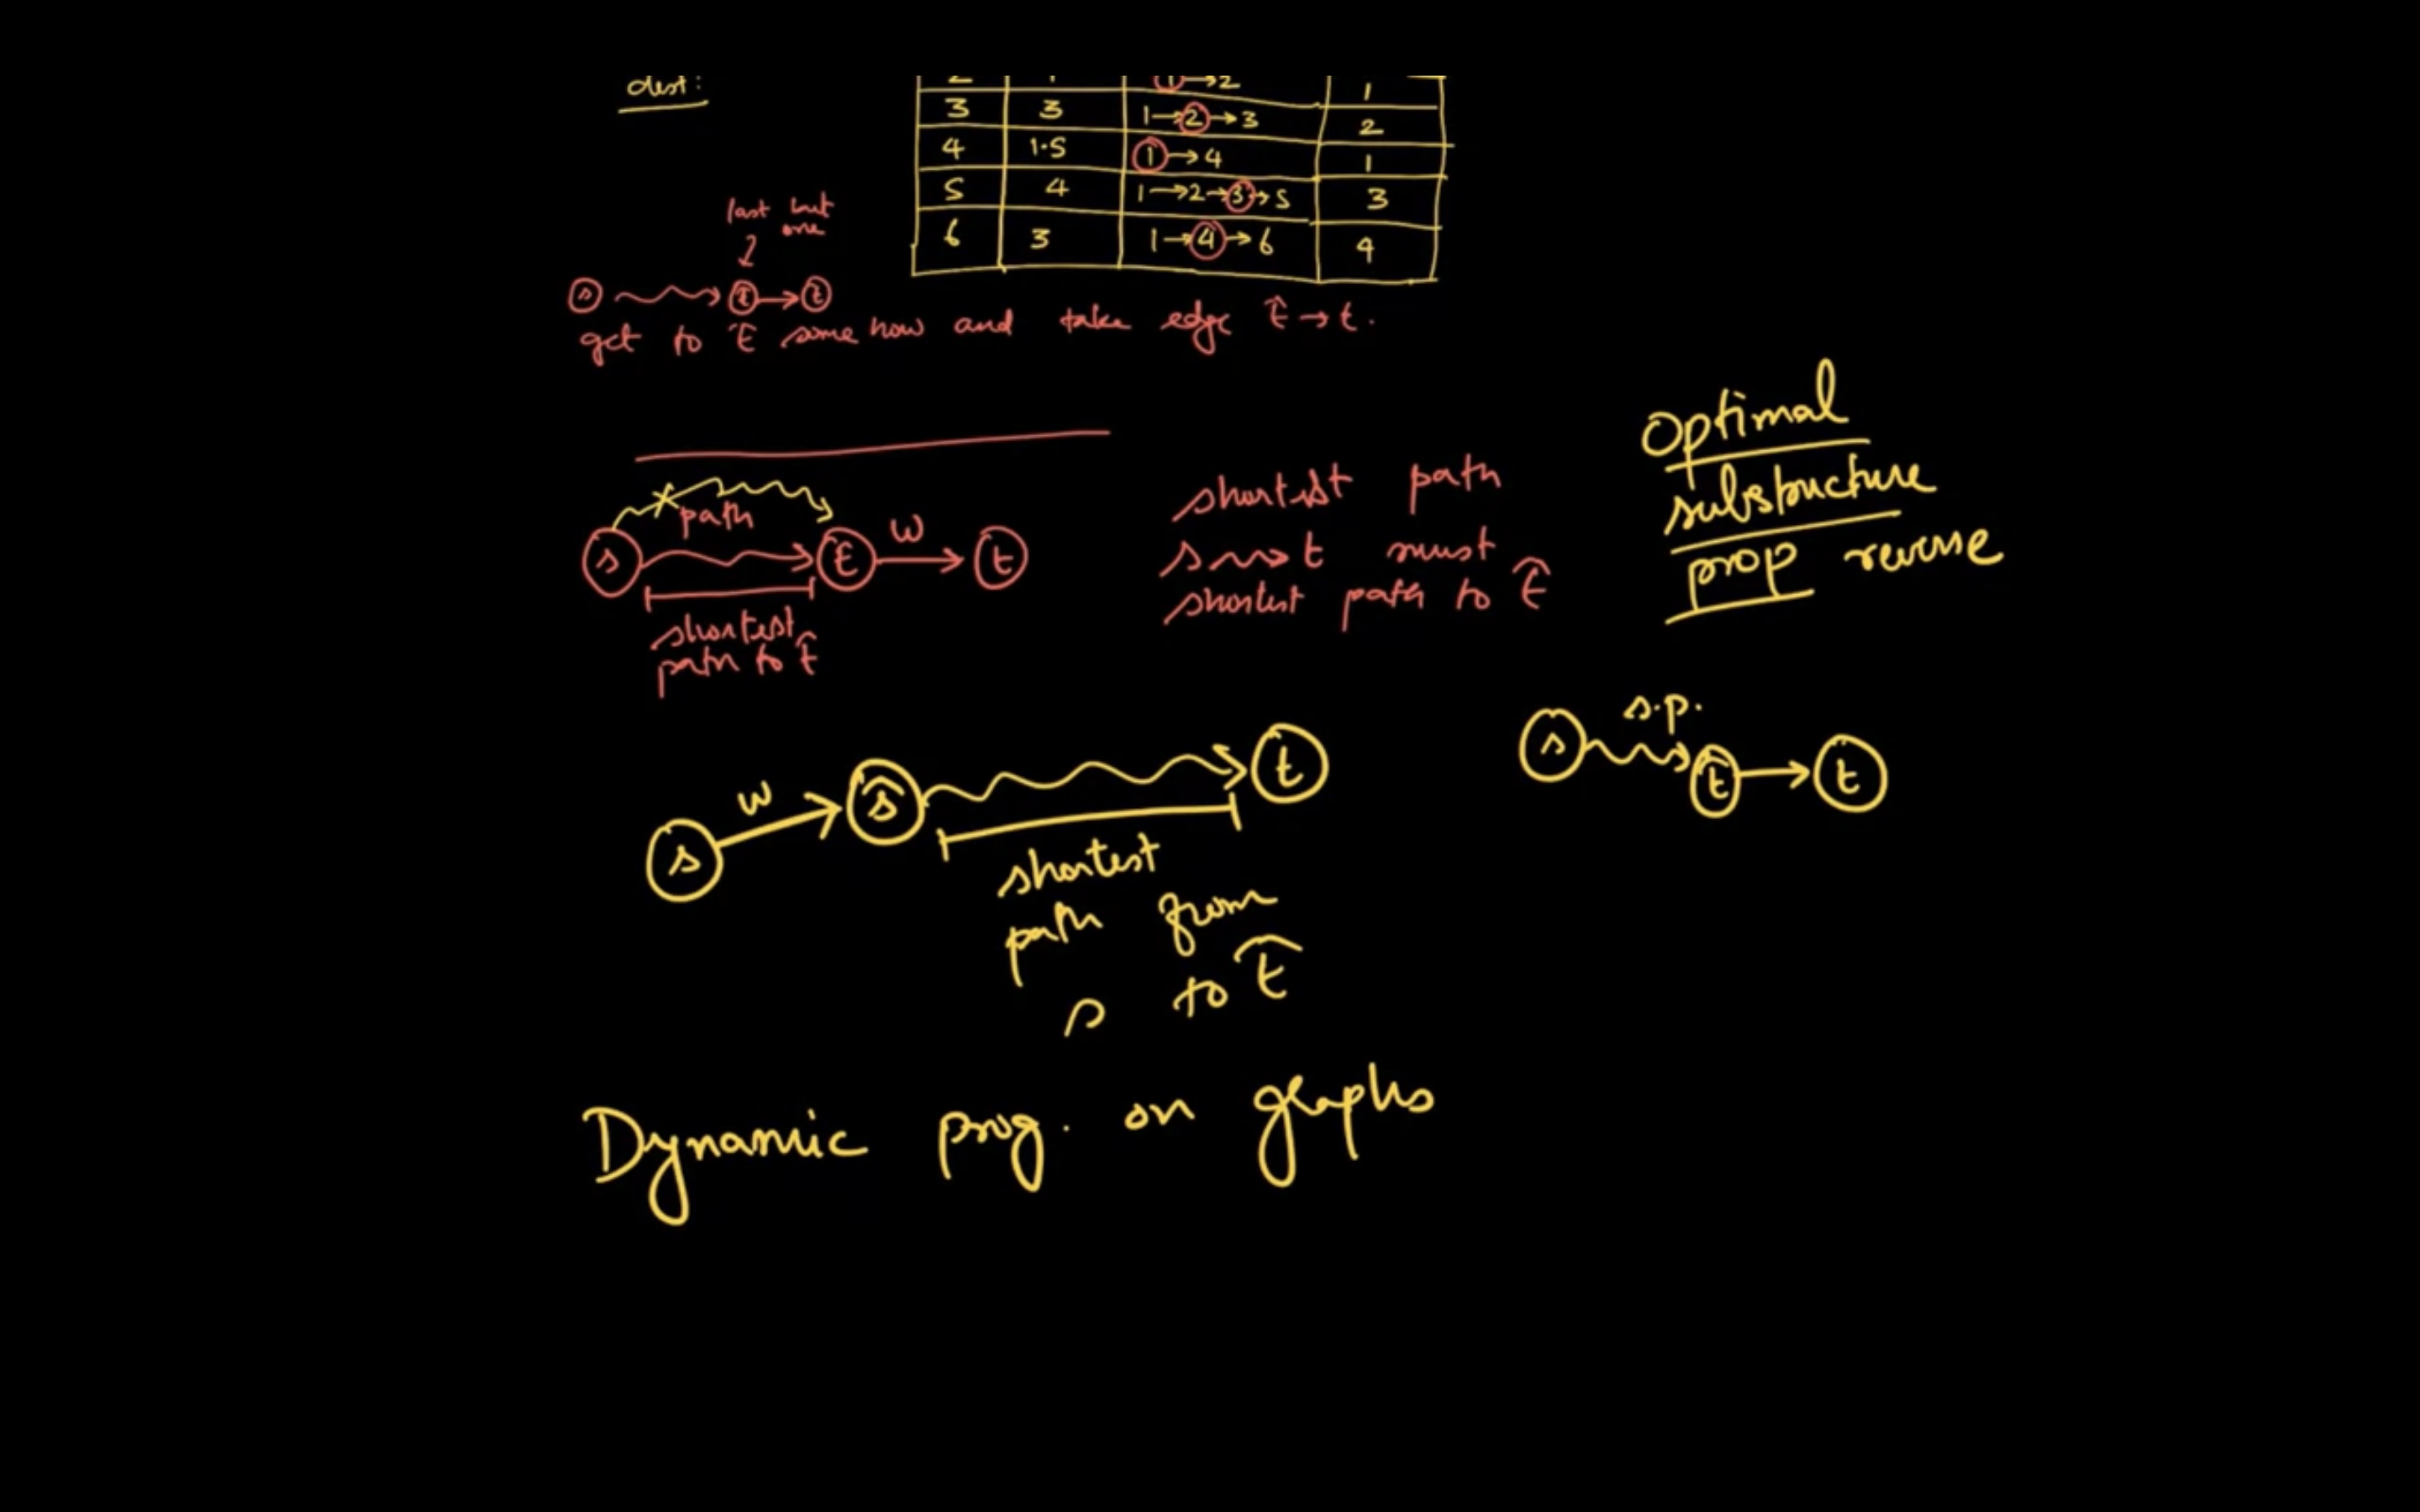 dest:
2 1 1→2 1
3 3 1→2→3 2
4 1.5 1→4 1
5 4 1→2→3→5 3
6 3 1→4→6 4
last but
one
s t̂ → t
get to t̂ some how and take edge t̂ → t.
path
s t̂ w t
shortest
path to t̂
shortest path
s ⇝ t must
shortest path to t̂
Optimal
substructure
prop reverse
s w ŝ t
shortest
path from
s to t̂
s s.p. t̂ → t
Dynamic prog. on graphs